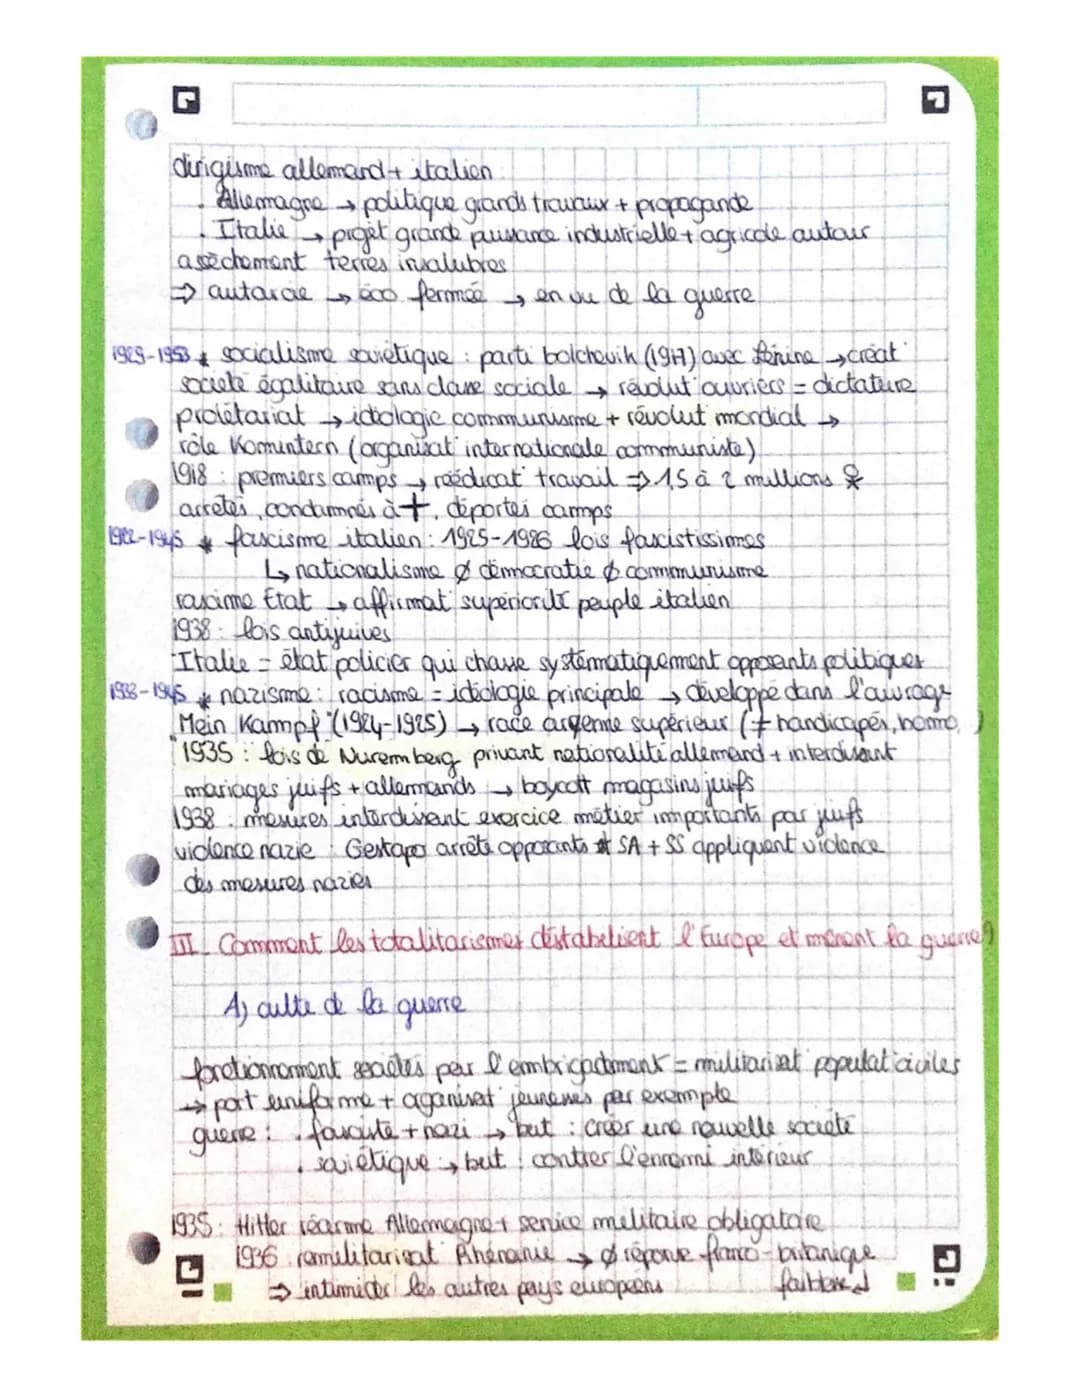 dirigisme allemand + italien :
. Allemagne → politique grands travaux + propagande
. Italie → projet grande puissance industrielle + agricole autour
assèchement terres insalubres
⇒ autarcie → éco fermée → en vu de la guerre
1929-1953 * socialisme soviétique : parti bolchevik (1917) avec Lénine → créat°
société égalitaire sans classe sociale → révolut° ouvriers = dictature
prolétariat → idéologie communisme + révolut° mondial →
rôle Komintern (organisat° internationale communiste)
1918 : premiers camps → rééducat° travail ⇒ 1,5 à 2 millions
arretés, condamnés à +, déportés camps
1922-1945 * fascisme italien : 1925-1926 lois fascistissimes
↳ nationalisme ∅ démocratie ∅ communisme
racisme État → affirmat° supériorité peuple italien
1938 : lois antijuives
Italie = état policier qui chasse systématiquement opposants politiques
1933-1945 * nazisme : racisme = idéologie principale → développé dans l'ouvrage
Mein Kampf (1924-1925) → race aryenne supérieur (≠ handicapés, homo, )
1935 : lois de Nuremberg privant nationalité allemand + interdisant
mariages juifs + allemands → boycott magasins juifs
1938 : mesures interdisant exercice métier importants par juifs
violence nazie : Gestapo arrête opposants SA + SS appliquent violence
des mesures nazies
III_ Comment les totalitarismes déstabilisent l'Europe et mènent la guerre ?
A) culte de la guerre
fonctionnement sociétés par l'embrigadement = militarisat° populat° civiles
→ port uniforme + organisat° jeunesses par exemple
guerre : . fasciste + nazi → but : créer une nouvelle société
. soviétique → but : contrer l'ennemi intérieur
1935 : Hitler réarme Allemagne + service militaire obligatoire
1936 : remilitarisat° Rhénanie → ∅ réponse franco-britanique
⇒ intimider les autres pays européens faiblesse ↲